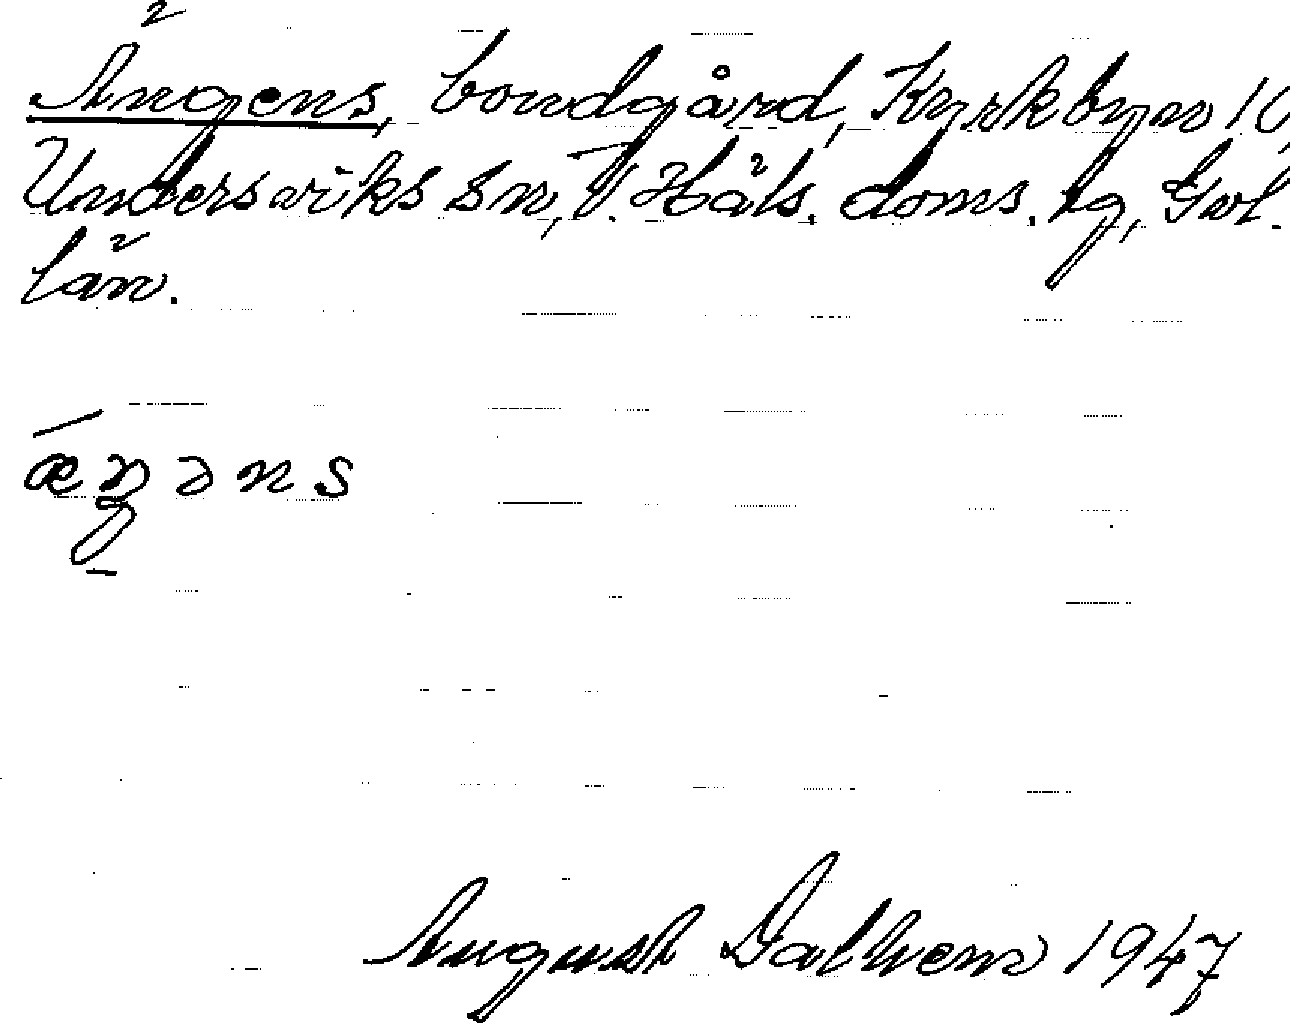 Ängens, bondgård, Kyrkbyn 10,
Undersviks sn, V. Häls. doms. tg, Gvl.
län.
æŋəns
August Dalhem 1947